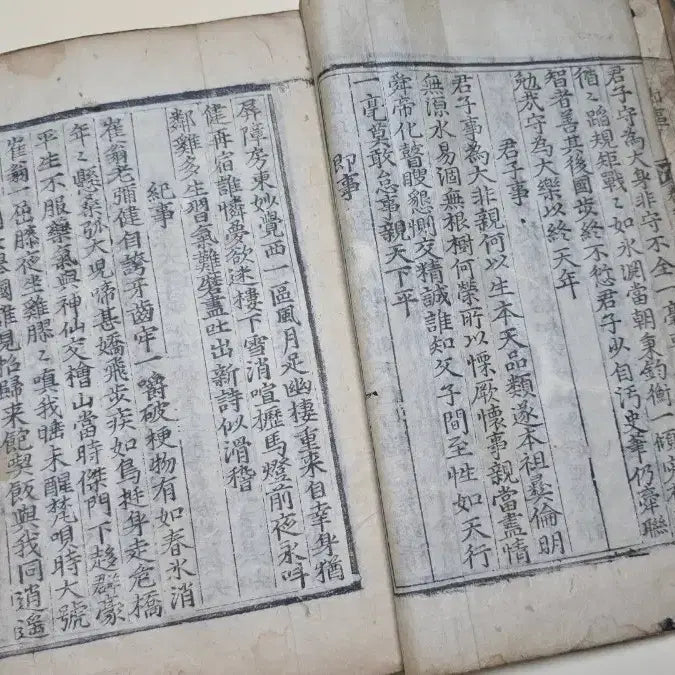 君子守為大身非守不全一毫
循〻蹈規矩戰〻如氷淵當朝秉鈞衡一傾
智者善其後國步終不愆君子以自汚史筆仍牽聯
勉哉守為大樂以終天年
君子事
君子事為大非親何以生本天品類遂本祖彛倫明
無源水易涸無根樹何榮所以慄厥懷事親當盡情
舜帝化瞽瞍懇惻交精誠誰知父子間至性如天行
一毫莫敢怠事親天下平
即事
屛障房東妙覺西一區風月足幽棲重來自幸身猶
健再宿誰憐夢欲迷樓下雪消喧攊馬燈前夜永呌
鄰雞多生習氣難磨盡吐出新詩似滑稽
紀事
崔翁老彌健自誇牙齒牢一嚼破梗物有如春氷消
年〻懸桑弧大兒啼甚嬌飛步疾如鳥挺身走危橋
平生不服藥氣與神仙交檜山當時傑門下趍群豪
崔翁一在膝夜坐雞膠〻嗔我睡未醒梵唄時大號
歸来飽與飯與我同逍遙